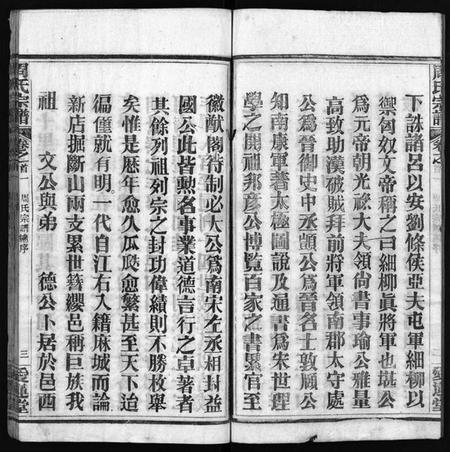 下誅諸呂以安劉條侯亞夫屯軍細柳以
禦匈奴文帝稱之曰細柳眞將軍也堪公
爲元帝朝光祿大夫領尙書事瑜公雅量
高致助漢破賊拜前將軍領南郡太守處
公爲晉御史中丞顗公爲晉名士敦頤公
知南康軍著太極圖說及通書爲宋世理
學之開祖邦彥公博覽百家之書累官至
徽猷閣待制必大公爲南宋左丞相封益
國公此皆勲名事業道德言行之卓著者
其餘列祖列宗之封功偉績則不勝枚舉
矣惟是歷年愈久瓜瓞愈繁甚至天下迨
徧僅就有明一代自江右入籍麻城而論
新店掘斷山兩支累世簪纓邑稱巨族我
祖 文公與弟 德公卜居於邑西
周氏宗譜
卷之首
周氏宗譜總序
三
愛蓮堂